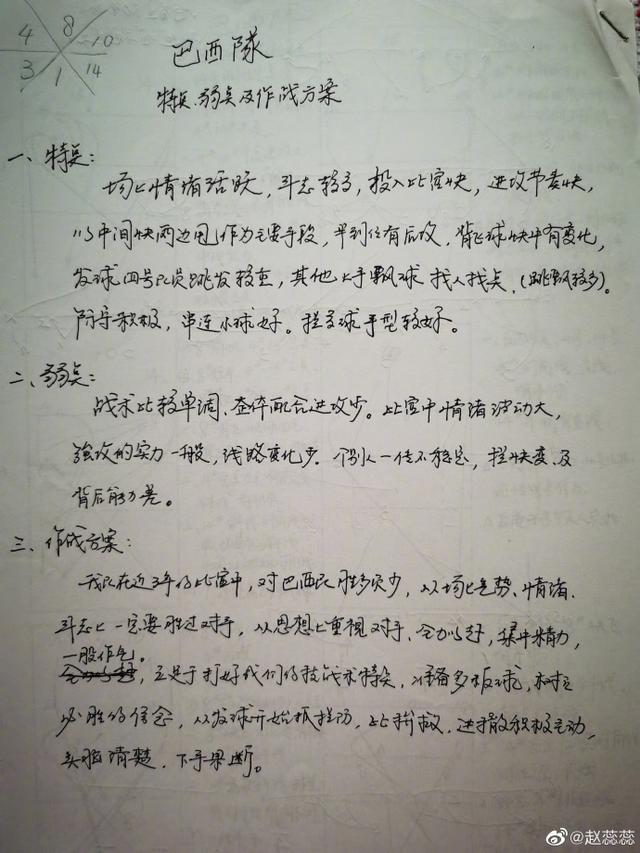 4 8 10
3 1 14
巴西隊
特点、弱点及作战方案
一、特点:
场上情绪活跃,斗志较高,投入比赛快,进攻节奏快,
以中间快两边甩作为主要手段,半到位有后攻,背飞球快中有变化,
发球四号队员跳发较重,其他上手飘球找人找点.(跳飘较多)。
防守积极,串连小球好。拦网球手型较好。
二、弱点:
战术比较单调、金体配合进攻少。比赛中情绪波动大,
強攻的实力一般,线路变化少.个别人一传不稳定,拦快变、及
背后能力差。
三、作战方案:
我队在近3年的比赛中,对巴西队胜多负少,从场上气势、情绪、
斗志上一定要胜过对手,从思想上重视对手、全力以赴,集中精力,
一股作气。
立足于打好我们的技战术特点,准备多板球,树立
必胜的信念,从发球开始抓拦防,比拚救,进攻积极主动,
头脑清楚,下手果断。
@赵蕊蕊